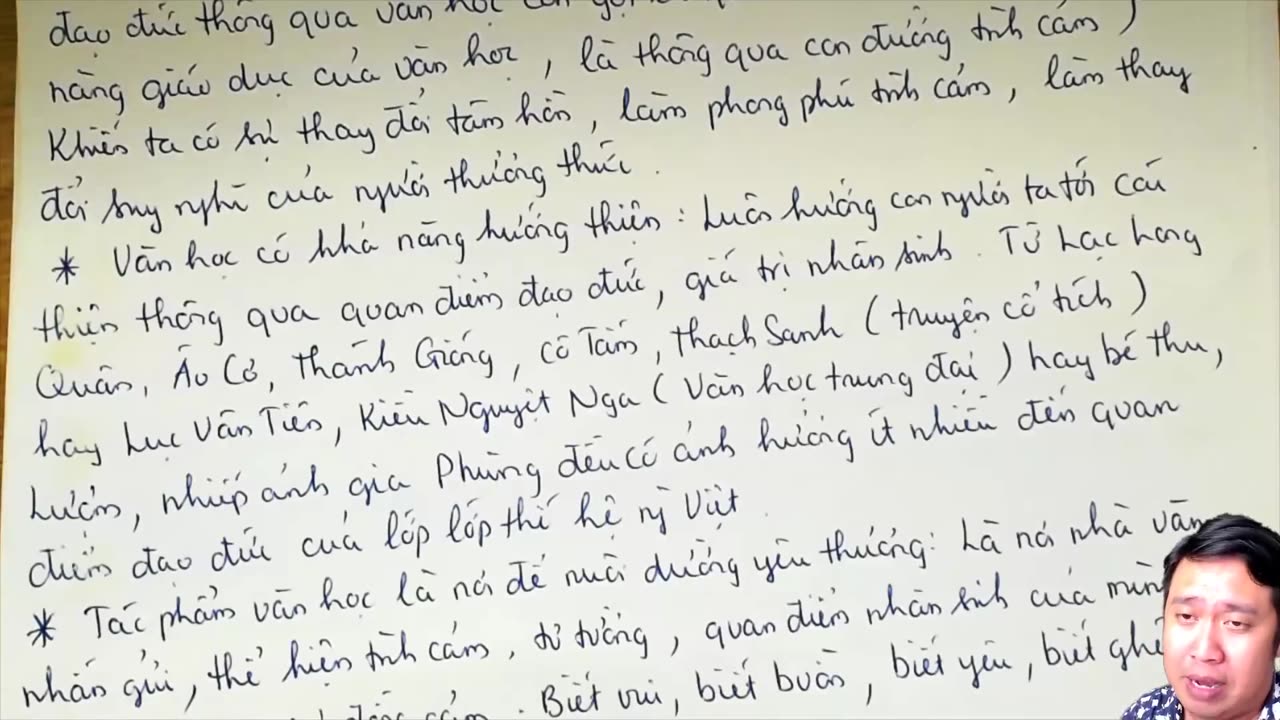 đạo đức thông qua văn học còn gọi
năng giáo dục của văn học, là thông qua con đường tình cảm)
Khiến ta có sự thay đổi tâm hồn, làm phong phú tình cảm, làm thay
đổi suy nghĩ của người thưởng thức.
* Văn học có khả năng hướng thiện: Luôn hướng con người ta tới cái
thiện thông qua quan điểm đạo đức, giá trị nhân sinh. Từ Lạc Long
Quân, Âu Cơ, Thánh Gióng, cô Tấm, Thạch Sanh (truyện cổ tích)
hay Lục Vân Tiên, Kiều Nguyệt Nga (Văn học trung đại) hay bé Thu,
Lượm, nhiếp ảnh gia Phùng đều có ảnh hưởng ít nhiều đến quan
điểm đạo đức của lớp lớp thế hệ ng Việt.
* Tác phẩm văn học là nơi để nuôi dưỡng yêu thương: Là nơi nhà văn
nhắn gửi, thể hiện tình cảm, tư tưởng, quan điểm nhân sinh của mình
đồng cảm. Biết vui, biết buồn, biết yêu, biết